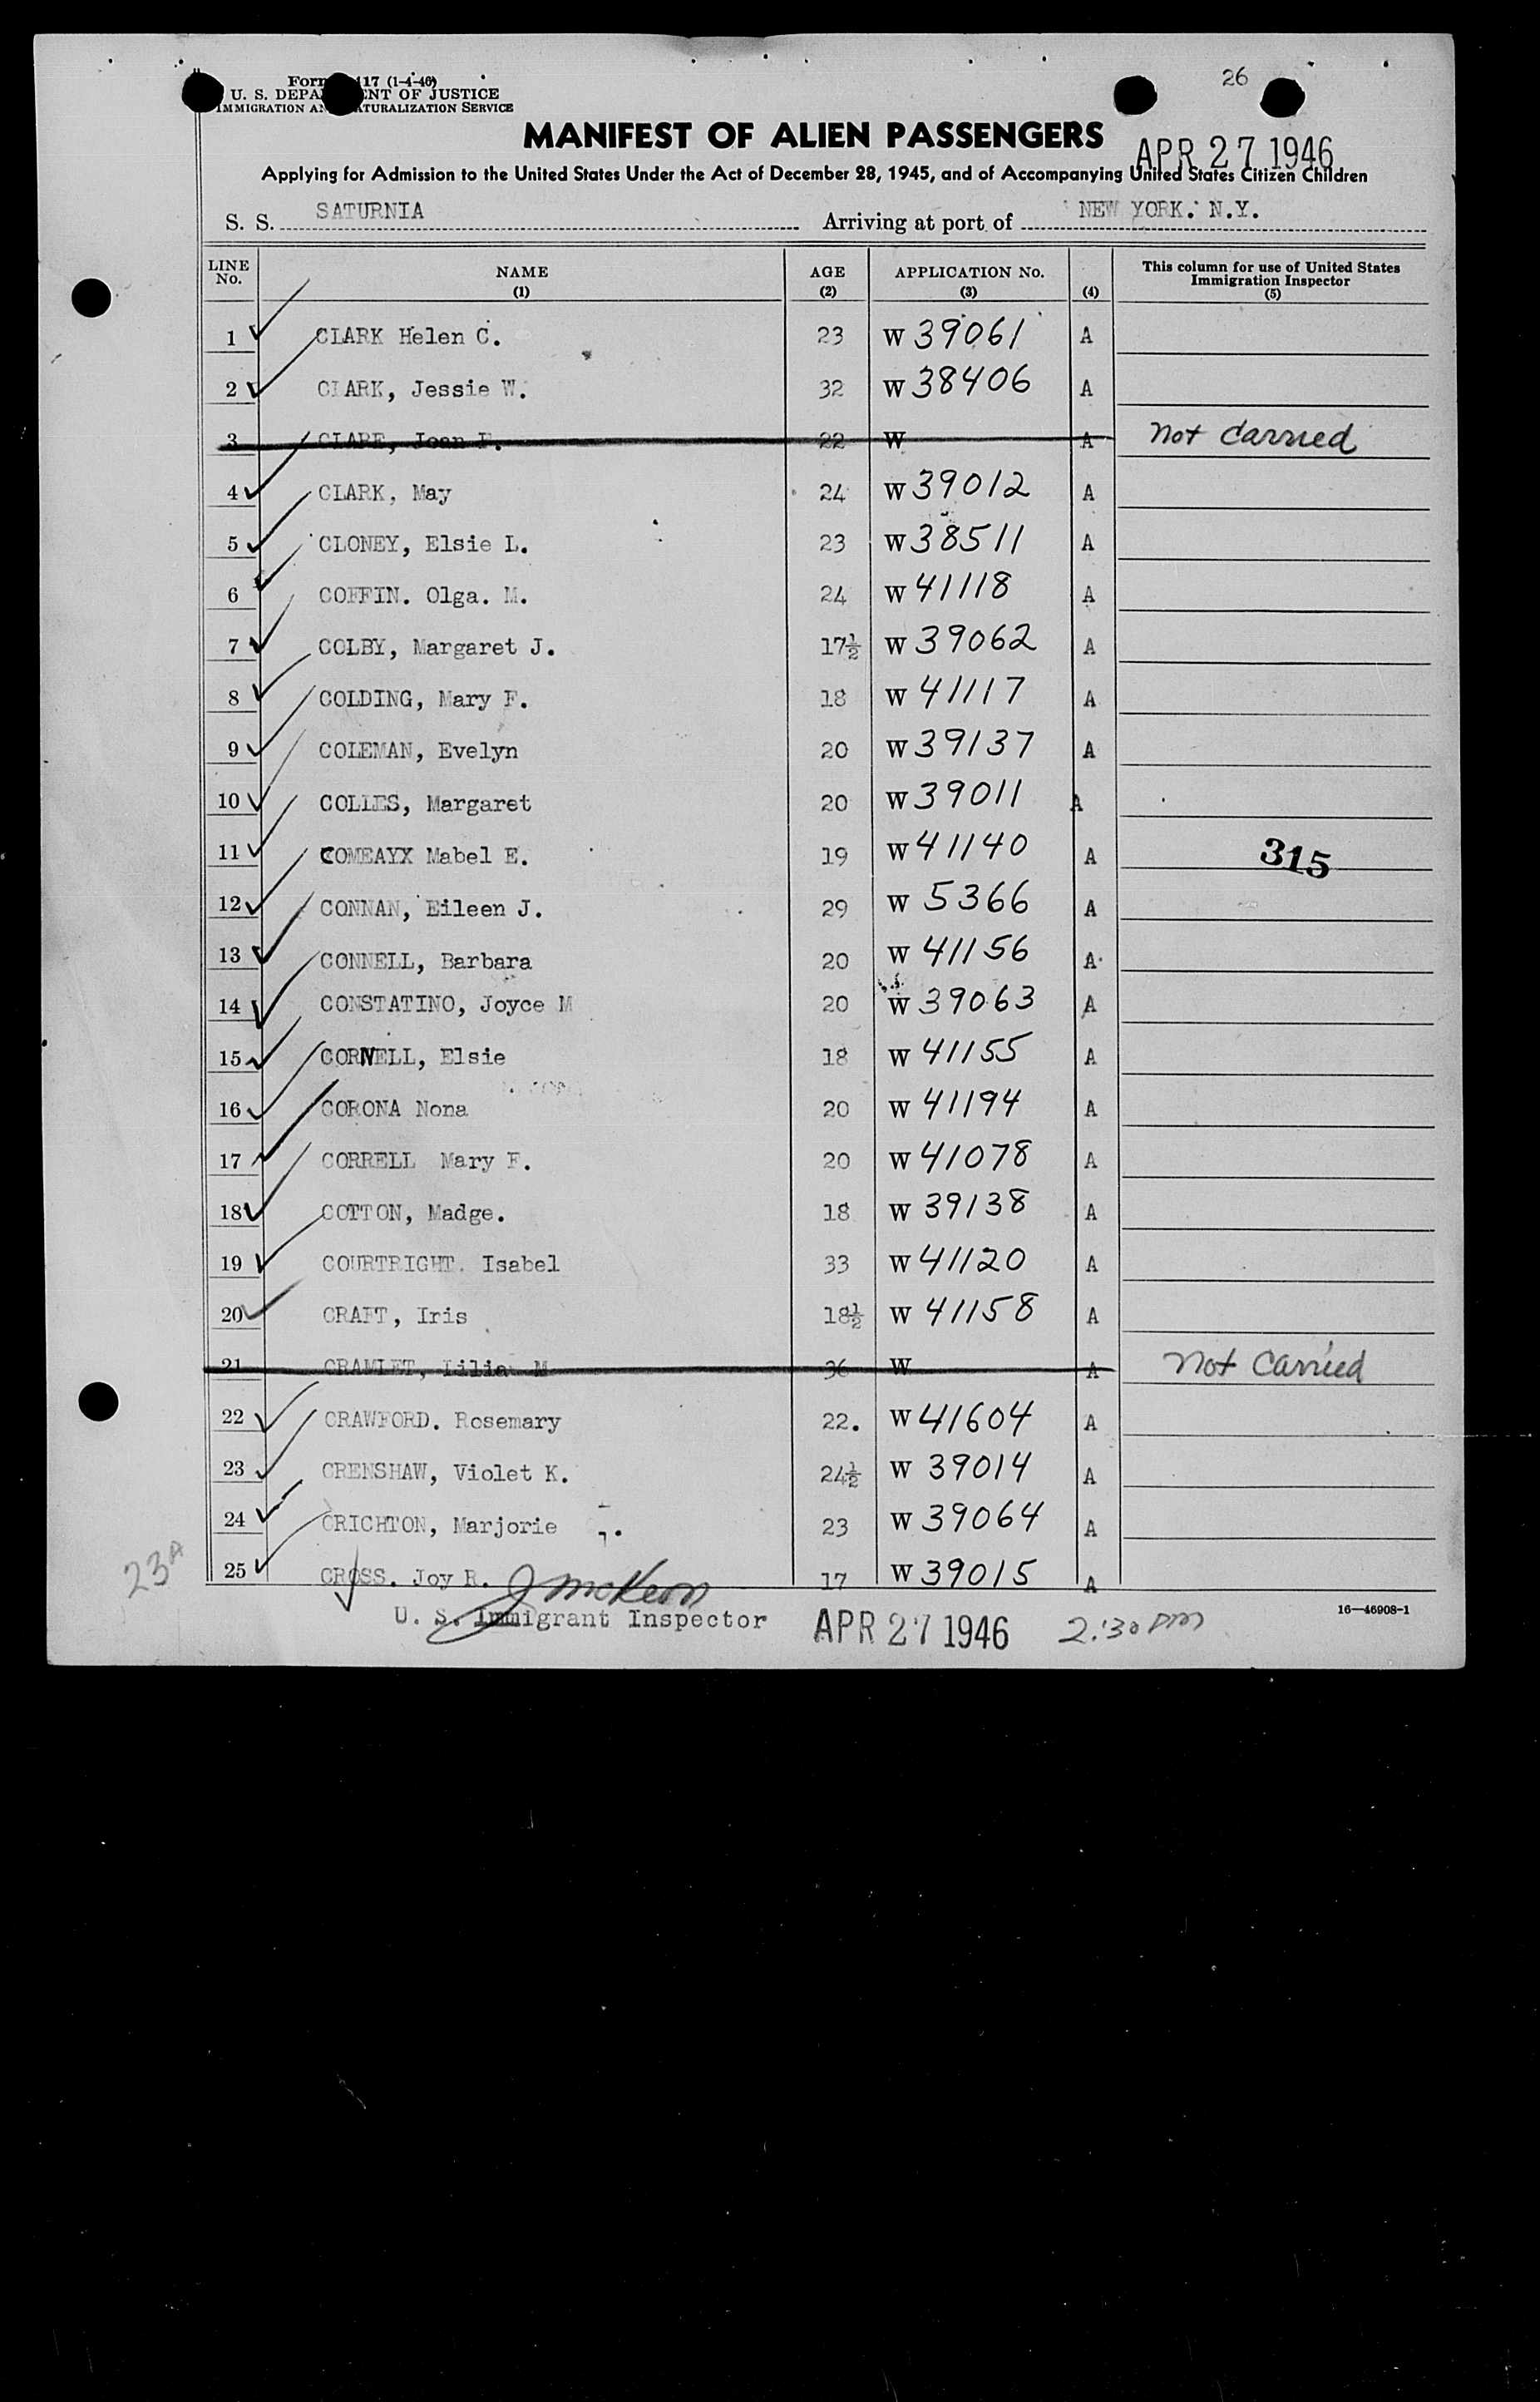 26
Form 117 (1-4-46)
U. S. DEPARTMENT OF JUSTICE
IMMIGRATION AND NATURALIZATION SERVICE
MANIFEST OF ALIEN PASSENGERS
APR 27 1946
Applying for Admission to the United States Under the Act of December 28, 1945, and of Accompanying United States Citizen Children
S. S. SATURNIA Arriving at port of NEW YORK. N.Y.
LINE No. NAME (1) AGE (2) APPLICATION No. (3) (4) This column for use of United States Immigration Inspector (5)
1 CLARK Helen C. 23 W 39061 A
2 CLARK, Jessie W. 32 W 38406 A
3 CLARE, Joan F. 22 W A not carried
4 CLARK, May 24 W 39012 A
5 CLONEY, Elsie L. 23 W 38511 A
6 COFFIN. Olga. M. 24 W 41118 A
7 COLBY, Margaret J. 17½ W 39062 A
8 COLDING, Mary F. 18 W 41117 A
9 COLEMAN, Evelyn 20 W 39137 A
10 COLLES, Margaret 20 W 39011 A
11 COMEAYX Mabel E. 19 W 41140 A 315
12 CONNAN, Eileen J. 29 W 5366 A
13 CONNELL, Barbara 20 W 41156 A
14 CONSTATINO, Joyce M 20 W 39063 A
15 CORNELL, Elsie 18 W 41155 A
16 CORONA Nona 20 W 41194 A
17 CORRELL Mary F. 20 W 41078 A
18 COTTON, Madge. 18 W 39138 A
19 COURTRIGHT. Isabel 33 W 41120 A
20 CRAFT, Iris 18½ W 41158 A
21 CRAMLET, Lilia M 36 W A not carried
22 CRAWFORD. Rosemary 22. W 41604 A
23 CRENSHAW, Violet K. 24½ W 39014 A
24 CRICHTON, Marjorie 23 W 39064 A
25 CROSS. Joy R. 17 W 39015 A
23A
J McKeon
U. S. Immigrant Inspector APR 27 1946 2:30 pm
16—46908-1